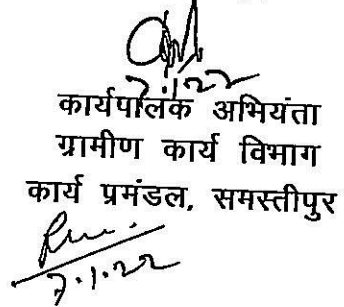 7.1.22
कार्यपालक अभियंता
ग्रामीण कार्य विभाग
कार्य प्रमंडल, समस्तीपुर
7.1.22